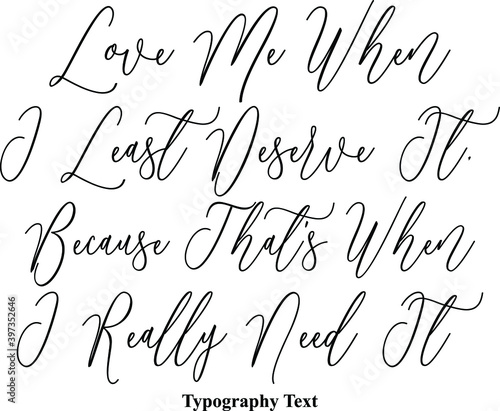 Love Me When
I Least Deserve It.
Because That's When
I Really Need It
Typography Text
Adobe Stock | #397352646